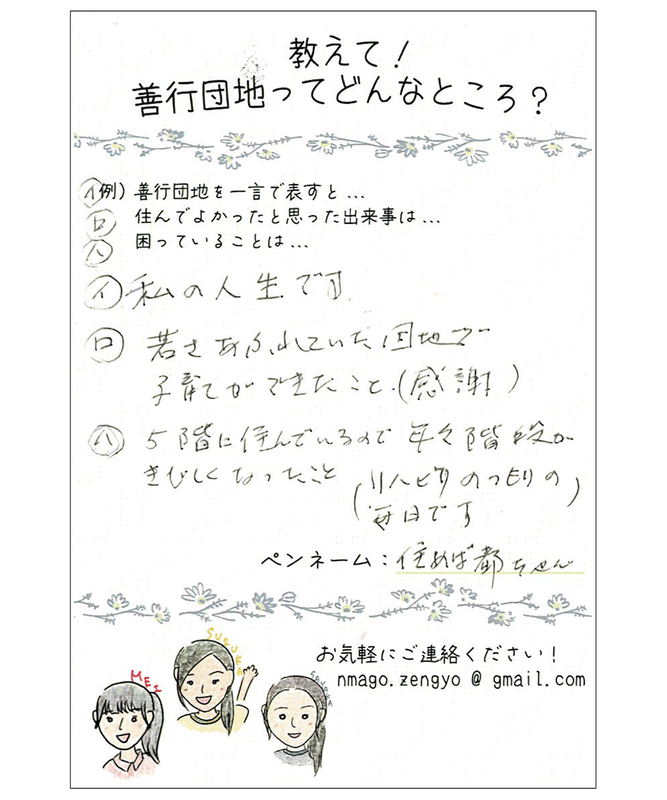 教えて！
善行団地ってどんなところ？
㋑例）善行団地を一言で表すと…
㋺ 住んでよかったと思った出来事は…
㋩ 困っていることは…
㋑ 私の人生です
㋺ 若さあふれていた団地で
子育てができたこと.（感謝）
㋩ 5階に住んでいるので年々階段が
きびしくなったこと（リハビリのつもりの
毎日です）
ペンネーム：住めば都ちゃん
MEI
SUZUKA
お気軽にご連絡ください！
nmago.zengyo @ gmail.com